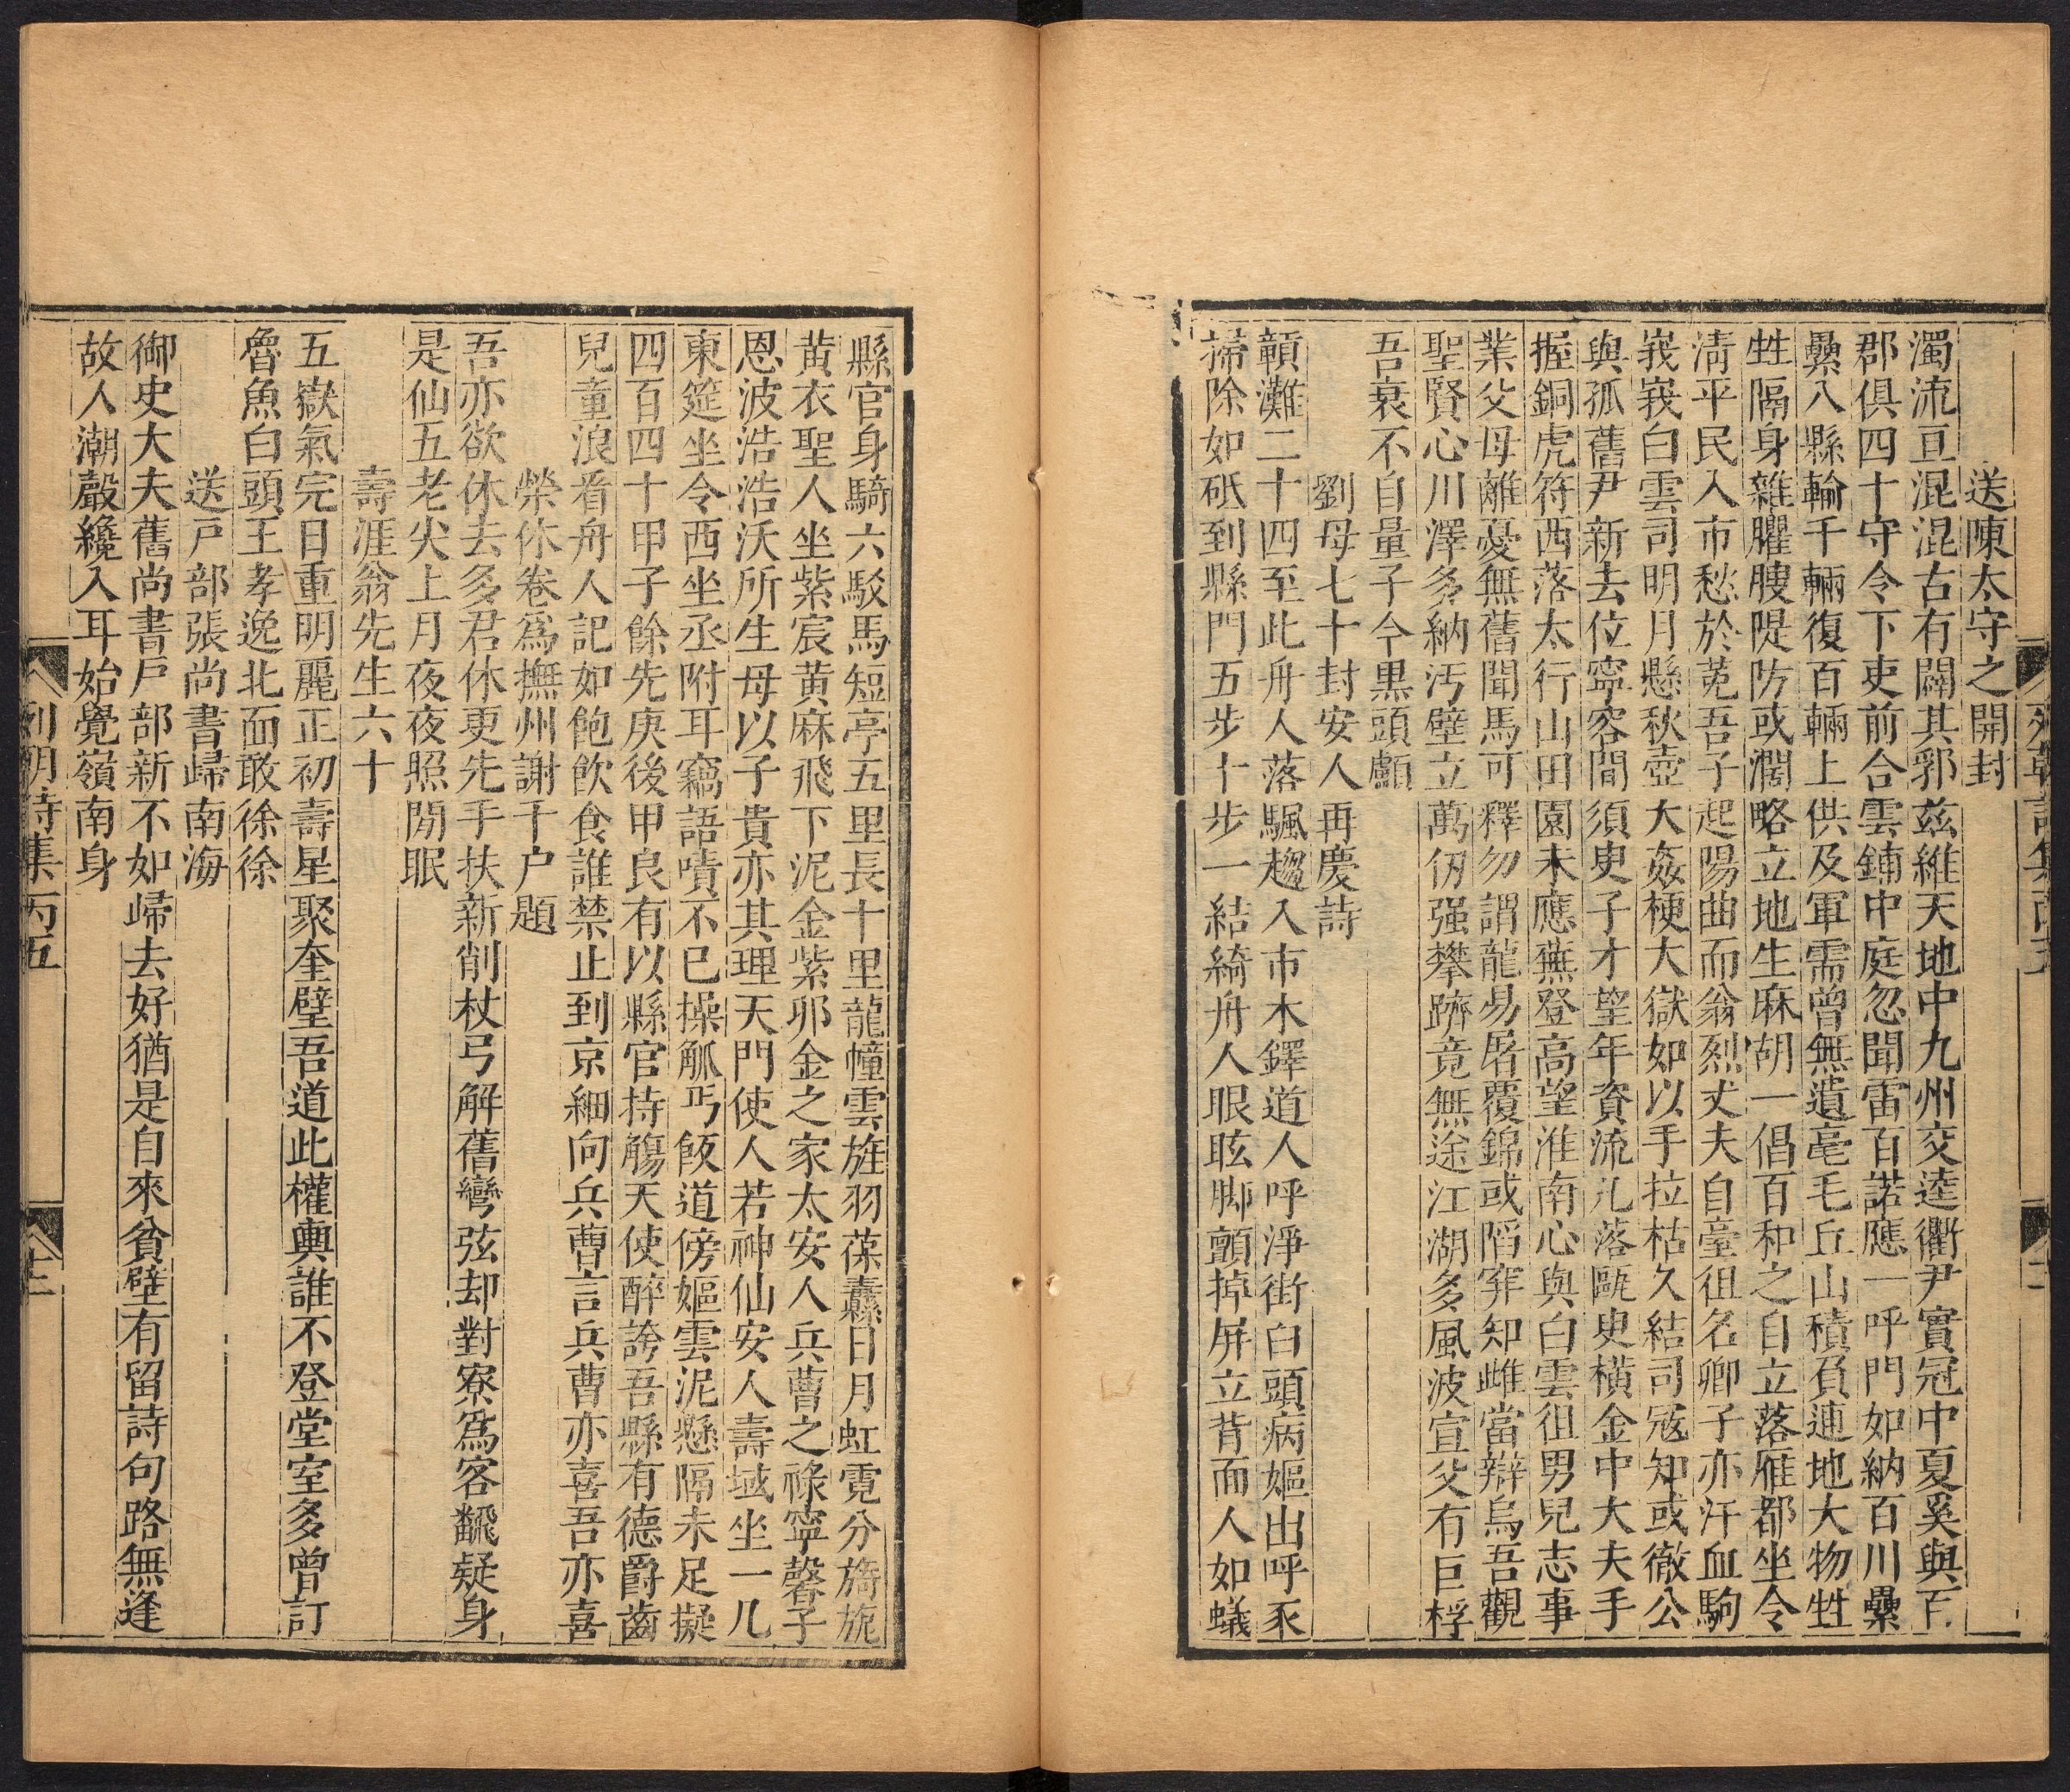 送陳太守之開封
濁流亘混混古有闢其郛兹維天地中九州交逵衢尹實冠中夏奚與百
郡俱四十守令下吏前合雲鋪中庭忽聞雷百諾應一呼門如納百川纍
纍八縣輪千輛復百輛上供及軍需曾無遺毫毛丘山積負連地大物甡
甡隔身雜臞腴隄防或濶略立地生麻胡一倡百和之自立落雁都坐令
清平民入市愁於菟吾子起陽曲而翁烈丈夫自臺徂名卿子亦汗血駒
峩峩白雲司明月懸秋壺大姦梗大獄如以手拉枯久結司宼知或徹公
與孤舊尹新去位寧容間須臾子才望年資流凡落甌臾橫金中大夫手
握銅虎符西落太行山田園未應蕪登高望淮南心與白雲徂男兒志事
業父母離憂無舊聞馬可釋勿謂龍易屠覆錦或䧟穽知雌當辯烏吾觀
聖賢心川澤多納汚壁立萬仞强攀躋竟無途江湖多風波宣父有巨桴
吾衰不自量子今黒頭顱
劉母七十封安人再慶詩
贑灘二十四至此舟人落颿趨入市木鐸道人呼淨街白頭病嫗出呼豕
掃除如砥到縣門五步十步一結綺舟人眼眩脚顫掉屏立背面人如蟻
縣官身騎六駁馬短亭五里長十里龍幢雲旌羽葆纛日月虹霓分旖旎
黄衣聖人坐紫宸黄麻飛下泥金紫卯金之家太安人兵曹之祿寧馨子
恩波浩浩沃所生母以子貴亦其理天門使人若神仙安人壽域坐一几
東筵坐令西坐丞附耳竊語嘖不已操觚丐飯道傍嫗雲泥懸隔未足擬
四百四十甲子餘先庚後甲良有以縣官持觴天使醉誇吾縣有德爵齒
兒童浪看舟人記如飽飲食誰禁止到京細向兵曹言兵曹亦喜吾亦喜
榮休卷爲撫州謝千户題
吾亦欲休去多君休更先手扶新削杖弓解舊彎弦却對寮爲客飜疑身
是仙五老尖上月夜夜照閒眠
壽涯翁先生六十
五嶽氣完日重明麗正初壽星聚奎壁吾道此權輿誰不登堂室多曾訂
魯魚白頭王孝逸北面敢徐徐
送戸部張尚書歸南海
御史大夫舊尚書戸部新不如歸去好猶是自來貧壁有留詩句路無逢
故人潮聲纔入耳始覺嶺南身
列朝詩集丙五